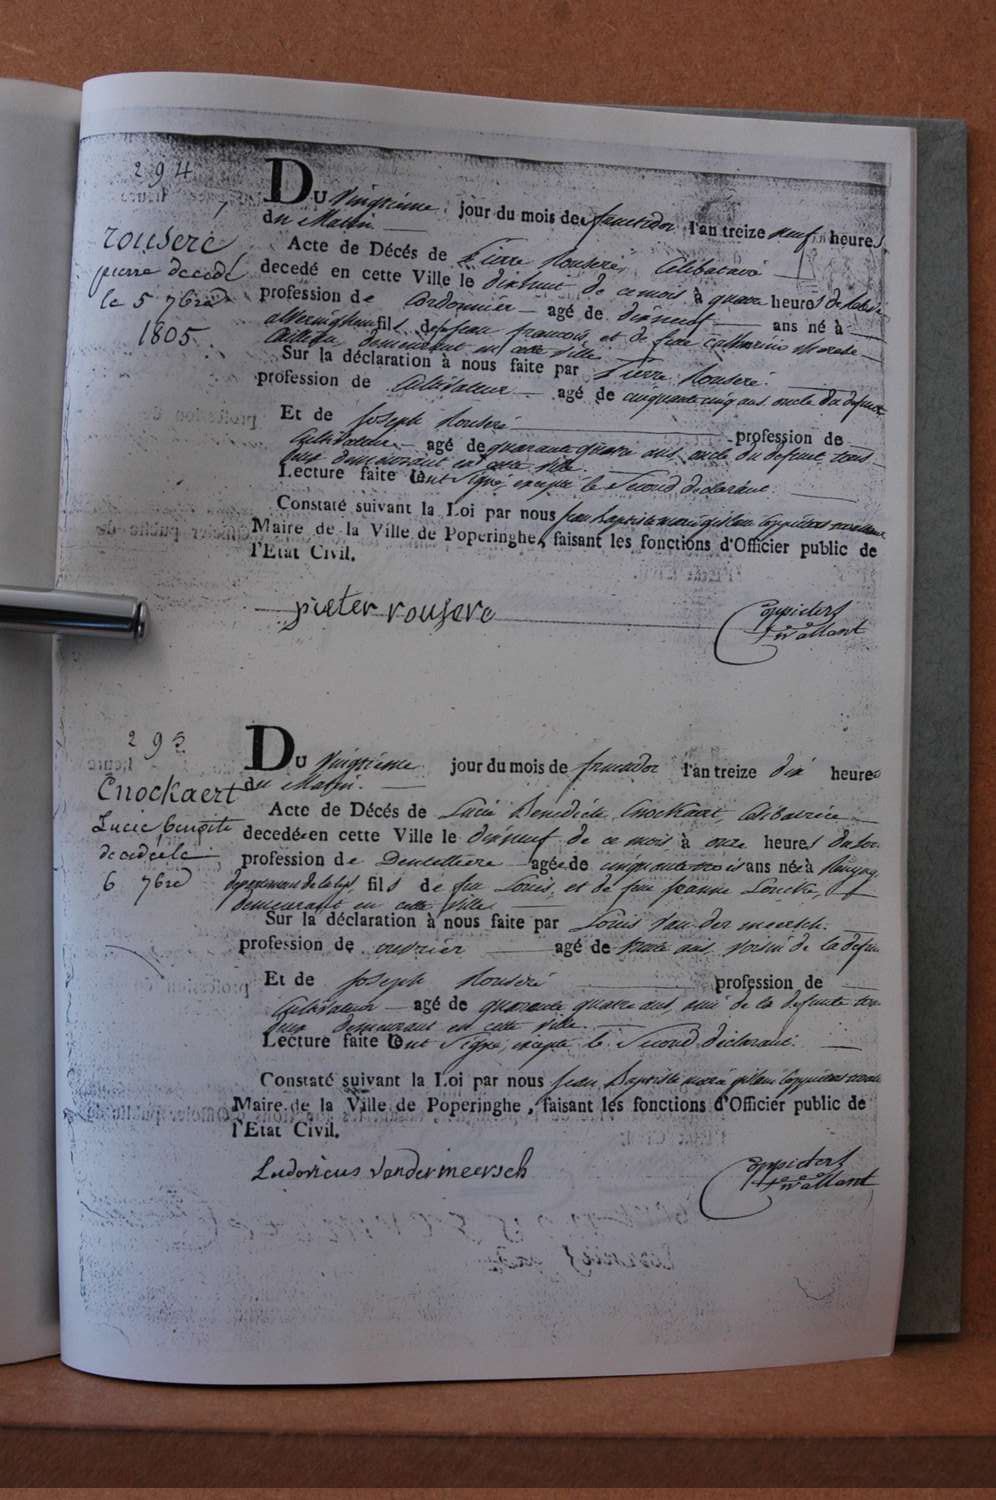 294
rousere
pierre decedé
le 5 7bre
1805
DU vingtieme jour du mois de fructidor l'an treize neuf heures
du Matin.
Acte de Décés de Pierre Rouseré, Celibataire
decedé en cette Ville le dixhuit de ce mois à quatre heures
profession de Cordonnier agé de dixneuf ans né à
fils de jean francois, et de feue Catharine
demeurant en cette ville
Sur la déclaration à nous faite par Pierre Rouseré.
profession de Cultivateur agé de cinquante cinq ans oncle du defunt
Et de Joseph Rouseré profession de
Cultivateur agé de quarante quatre ans oncle du defunt, tous
deux demeurant en cette ville.
Lecture faite ont Signé, excepté le Second declarant.
Constaté suivant la Loi par nous jean baptiste marie Coppieters
Maire de la Ville de Poperinghe, faisant les fonctions d'Officier public de
l'Etat Civil.
pieter rousere
Coppieters
t'wallant
295
Cnockaert
Lucie benoite
decedée le
6 7bre
DU vingtieme jour du mois de fructidor l'an treize dix heures
du Matin.
Acte de Décés de Lucie Benedicte Cnockaert, Celibataire
decedée en cette Ville le dixneuf de ce mois à onze heures du soir
profession de Dentelliere agée de cinquante trois ans née à
departement de la Lys, fils de feu Louis, et de feue
demeurant en cette ville
Sur la déclaration à nous faite par Louis Van der meersch.
profession de ouvrier agé de trente ans, voisin de la
Et de Joseph Rouseré profession de
Cultivateur agé de quarante quatre ans, ami de la defunte
deux demeurant en cette ville.
Lecture faite ont Signé, excepté le Second declarant.
Constaté suivant la Loi par nous Jean Baptiste marie Coppieters
Maire de la Ville de Poperinghe, faisant les fonctions d'Officier public de
l'Etat Civil.
Ludovicus Vandermeersch
Coppieters
t'wallant